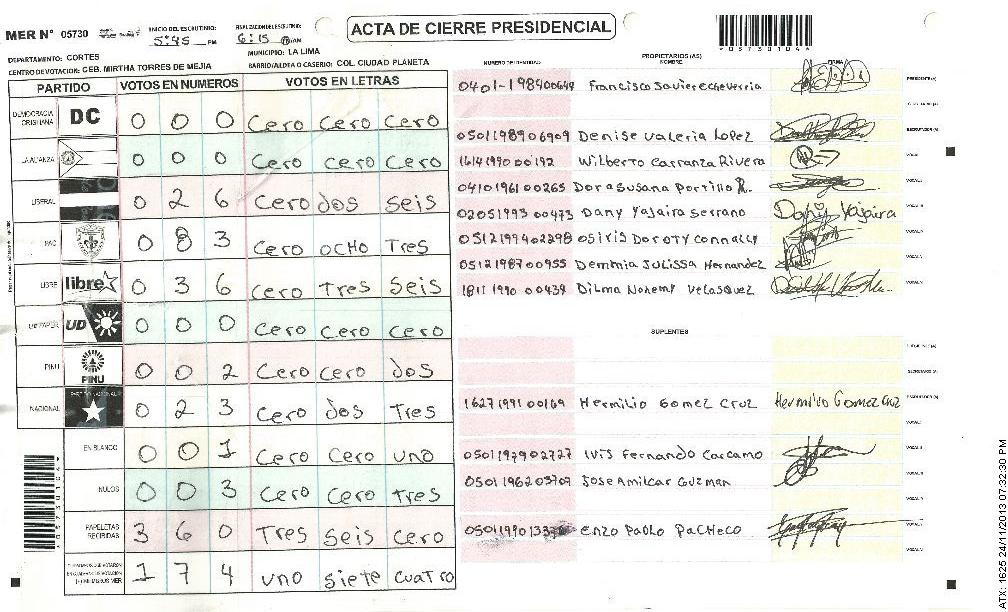 MER N° 05730
INICIO DEL ESCRUTINIO: 5:45 PM
FINALIZACION DEL ESCRUTINIO: 6:15
ACTA DE CIERRE PRESIDENCIAL
DEPARTAMENTO: CORTES
MUNICIPIO: LA LIMA
CENTRO DE VOTACION: CEB. MIRTHA TORRES DE MEJIA
BARRIO/ALDEA O CASERIO: COL. CIUDAD PLANETA
PARTIDO VOTOS EN NUMEROS VOTOS EN LETRAS
DEMOCRACIA CRISTIANA DC 0 0 0 Cero Cero Cero
LA ALIANZA 0 0 0 Cero Cero Cero
LIBERAL 0 2 6 Cero dos seis
PAC 0 8 3 Cero OCHO Tres
LIBRE libre 0 3 6 Cero Tres Seis
UD FAPER UD 0 0 0 Cero Cero Cero
PINU PINU 0 0 2 Cero Cero dos
NACIONAL 0 2 3 Cero dos Tres
EN BLANCO 0 0 1 Cero Cero uno
NULOS 0 0 3 Cero Cero tres
PAPELETAS RECIBIDAS 3 6 0 Tres seis cero
1 7 4 uno siete cuatro
NUMERO DE IDENTIDAD
PROPIETARIOS (AS)
NOMBRE
FIRMA
0401-198400649 Francisco Javier echeverria
PRESIDENTE (A)
SECRETARIO (A)
0501198906909 Denise Valeria Lopez
ESCRUTADOR (A)
1614199000192 Wilberto Carranza Rivera
VOCAL I
0410196100265 Dora Susana Portillo R.
0205199300473 Dany Yajaira Serrano Dany Yajaira
0512199402298 Osiris Doroty Connally
0512198700955 Demmia Julissa Hernandez
1811199000439 Dilma Nohemy Velasquez
SUPLENTES
SECRETARIO (A)
1627199100169 Hermilio Gomez Cruz Hermilio Gomez Cruz
ESCRUTADOR (A)
0501197902727 Ivis Fernando Carcamo
0501196203709 Jose Amilcar Guzman
Enzo Pablo Pacheco
ATX: 1625 24/11/2013 07:32:30 PM